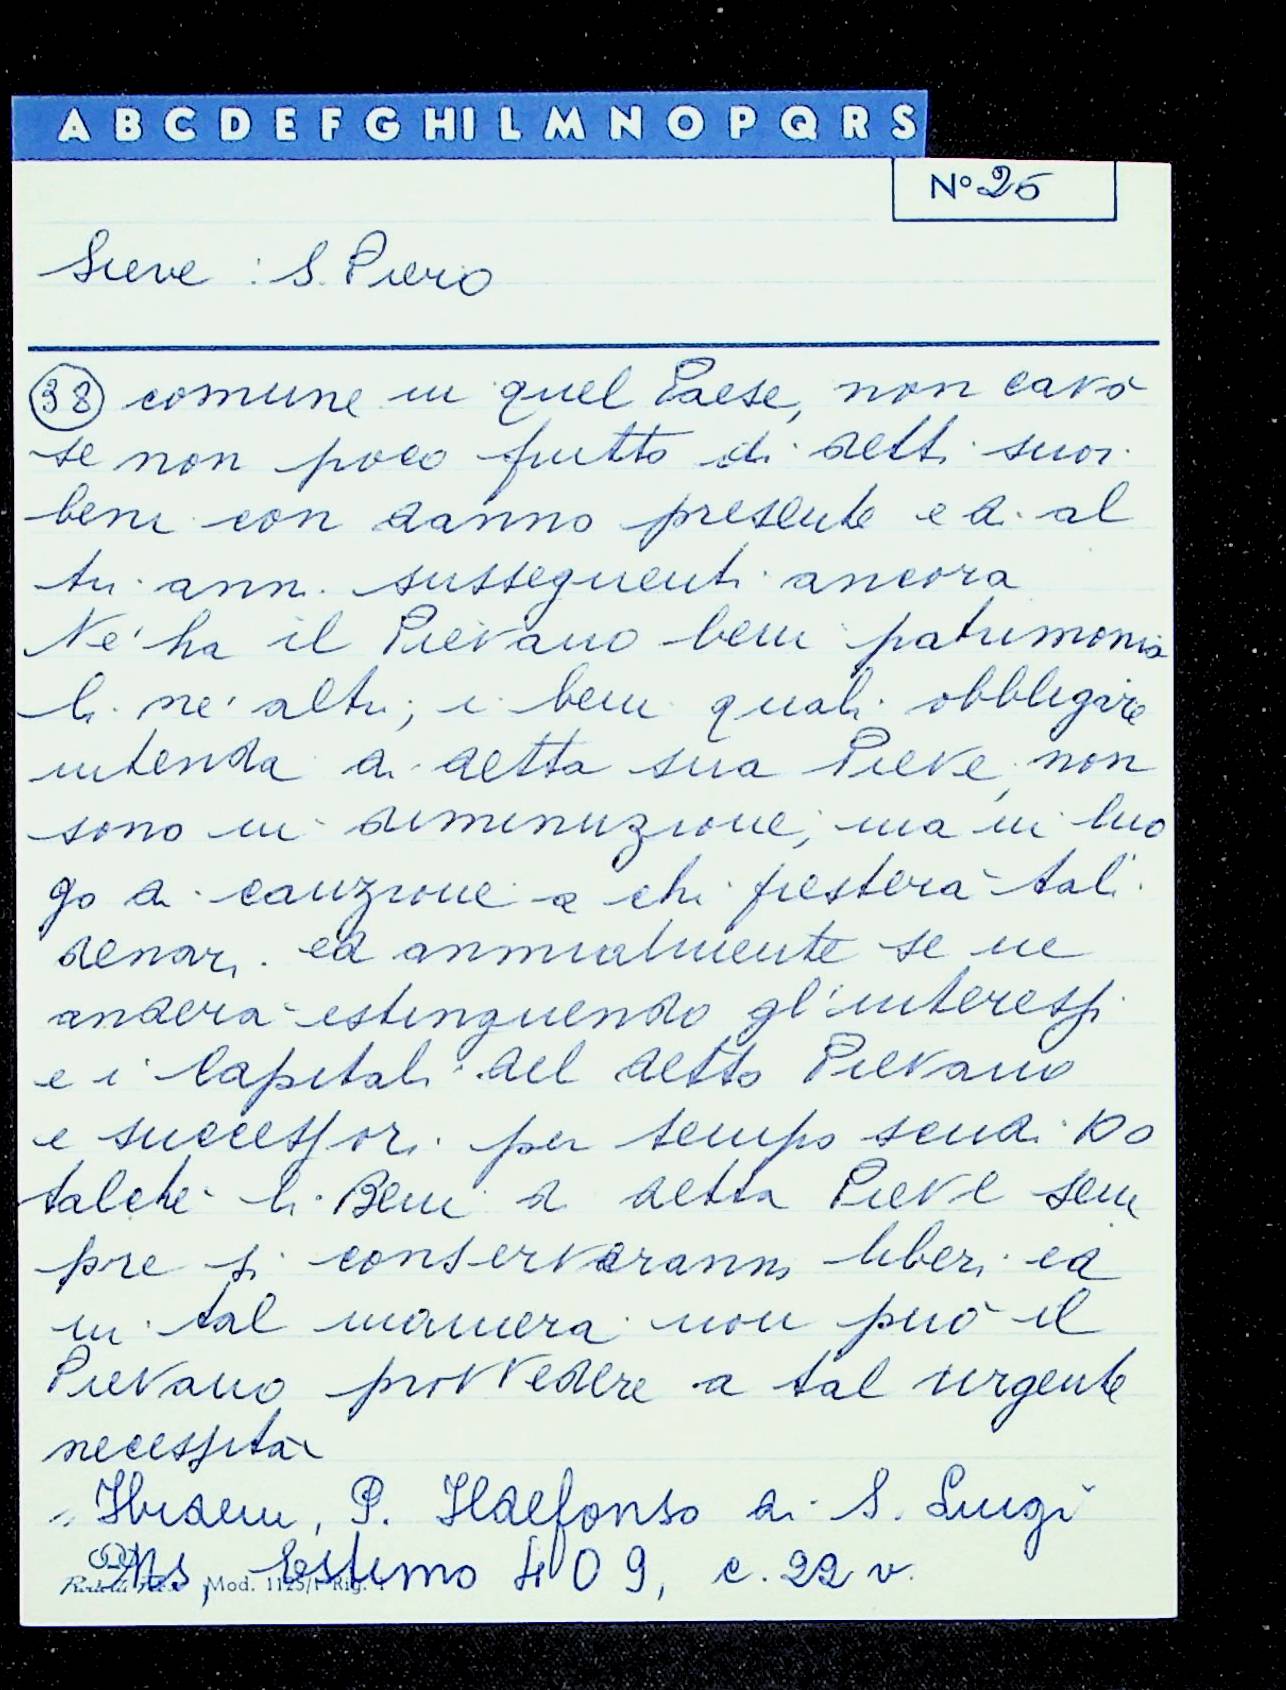 A B C D E F G HI L M N O P Q R S
N° 25
Sieve : S. Piero
38 comune in quel Paese, non cavò
se non poco frutto di detti suoi
beni con danno presente e di al
tri anni susseguenti ancora
Ne' ha il Pievano beni patrimonia
li ne' altri; i beni quali obbligare
intenda di detta sua Pieve, non
sono in diminuzione, ma in luo
go di cauzione a chi presterà tali
denari ed annualmente se ne
anderà estinguendo gl'interessi
e i Capitali del detto Pievano
e successori per tempo scudi
talché li Beni di detta Pieve sem
pre si conserveranno liberi ed
in tal maniera non può il
Pievano provvedere a tal urgente
necessità
Ibidem, P. Ildefonso di S. Luigi
Ms, Estimo 409, c. 22 v.
Mod. 1125/1 Rig.